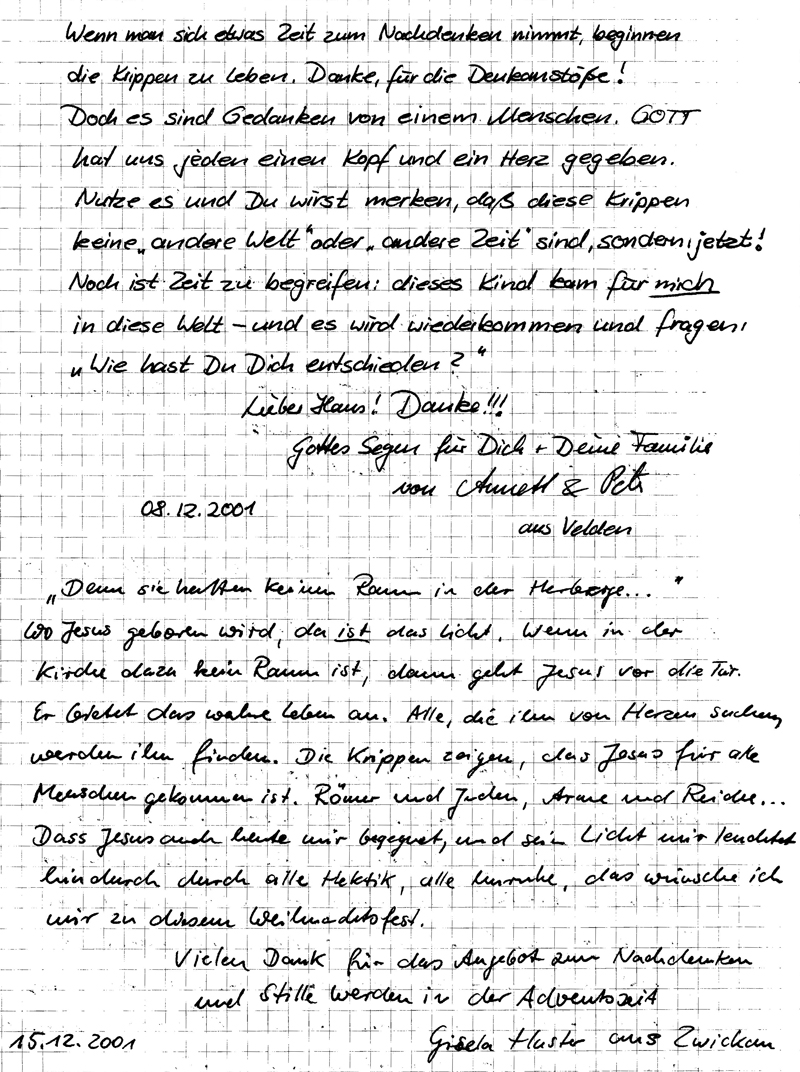 Wenn man sich etwas Zeit zum Nachdenken nimmt, beginnen
die Krippen zu leben. Danke, für die Denkanstöße!
Doch es sind Gedanken von einem Menschen. GOTT
hat uns jeden einen Kopf und ein Herz gegeben.
Nutze es und Du wirst merken, daß diese Krippen
keine „andere Welt“ oder „andere Zeit“ sind, sondern, jetzt!
Noch ist Zeit zu begreifen: dieses Kind kam für mich
in diese Welt – und es wird wiederkommen und fragen,
„Wie hast Du Dich entschieden?“
Lieber Hans! Danke!!!
Gottes Segen für Dich + Deine Familie
von &
08.12.2001
aus Velden
„Denn sie hatten keinen Raum in der Herberge...“
Wo Jesus geboren wird, da ist das Licht. Wenn in der
Kirche dazu kein Raum ist, dann geht Jesus vor die Tür.
Er bietet das wahre Leben an. Alle, die ihn von Herzen suchen,
werden ihn finden. Die Krippen zeigen, das Jesus für alle
Menschen gekommen ist. Römer und Juden, Arme und Reiche...
Dass Jesus auch heute mir begegnet, und sein Licht mir leuchtet
hindurch durch alle Hektik, alle Unruhe, das wünsche ich
mir zu diesem Weihnachtsfest.
Vielen Dank für das Angebot zum Nachdenken
und Stille werden in der Adventszeit
15.12.2001
Gisela Huster aus Zwickau